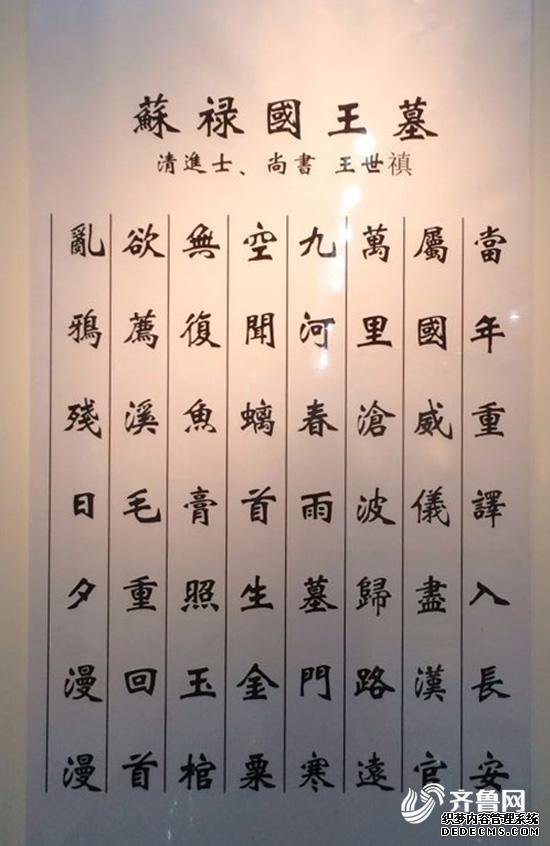 蘇禄國王墓
清進士、尚書 王世禛
當年重譯入長安
屬國威儀盡漢官
萬里滄波歸路遠
九河春雨墓門寒
空聞螭首生金粟
無復魚膏照玉棺
欲薦溪毛重回首
亂鴉殘日夕漫漫
齐鲁网
织梦内容管理系统
DEDECMS.COM